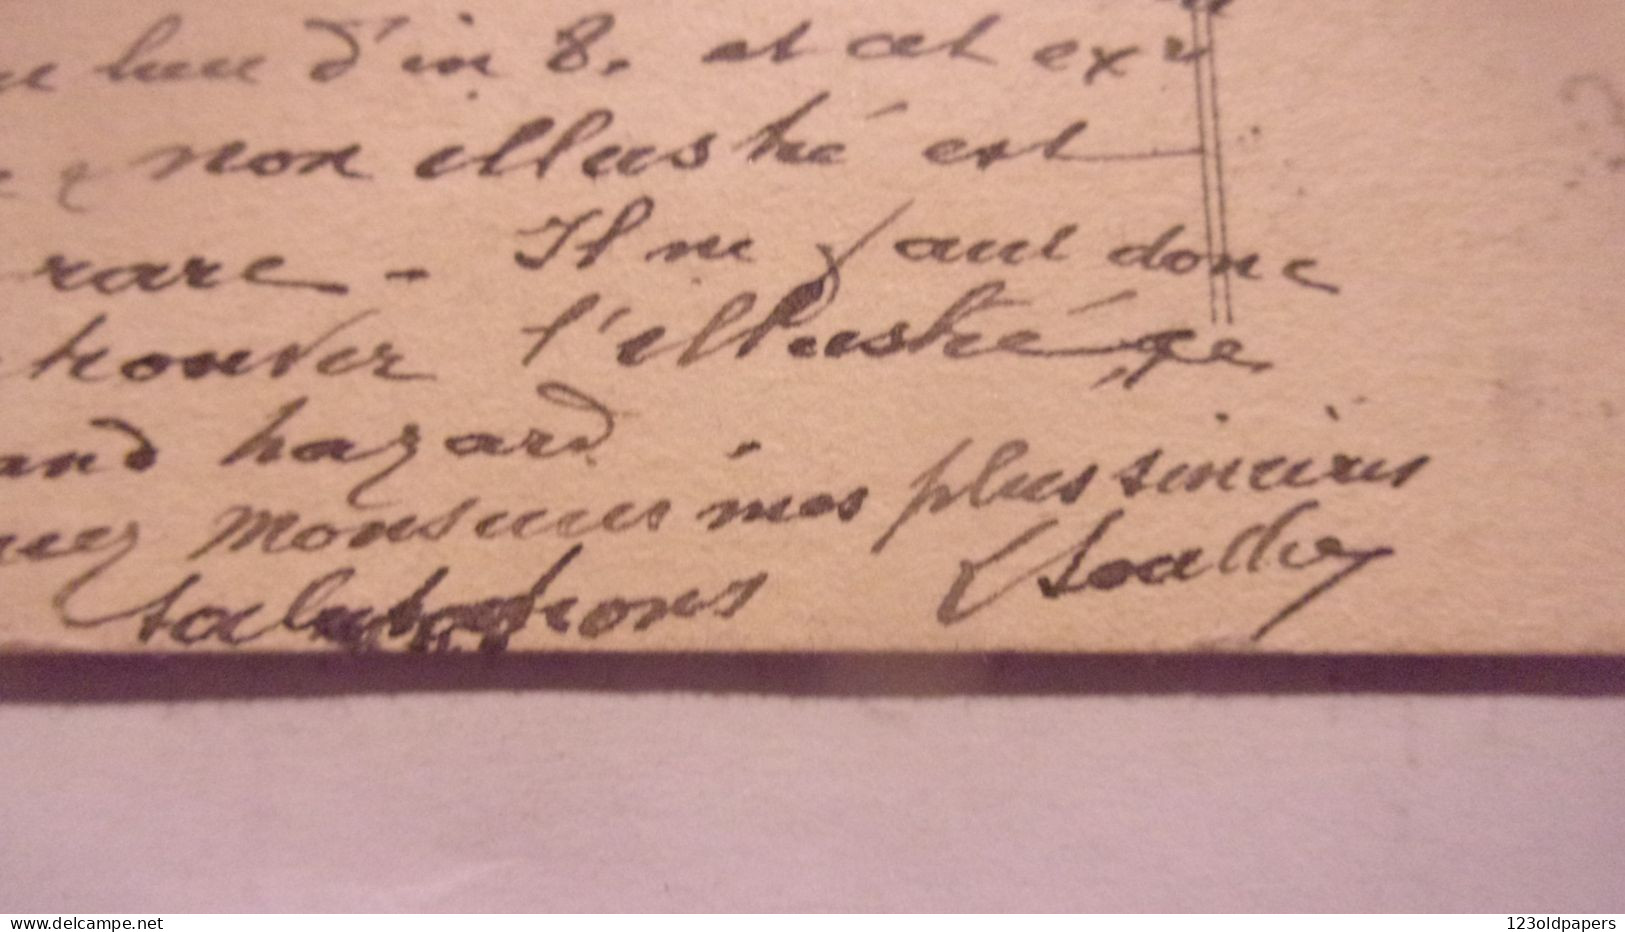 lieu d'in 8. et cet ex
non illustré est
rare - Il ne faut donc
trouver l'illustré qe
and hazard.
Monsieur mes plus sincères
salutations
delcampe.net
123oldpapers